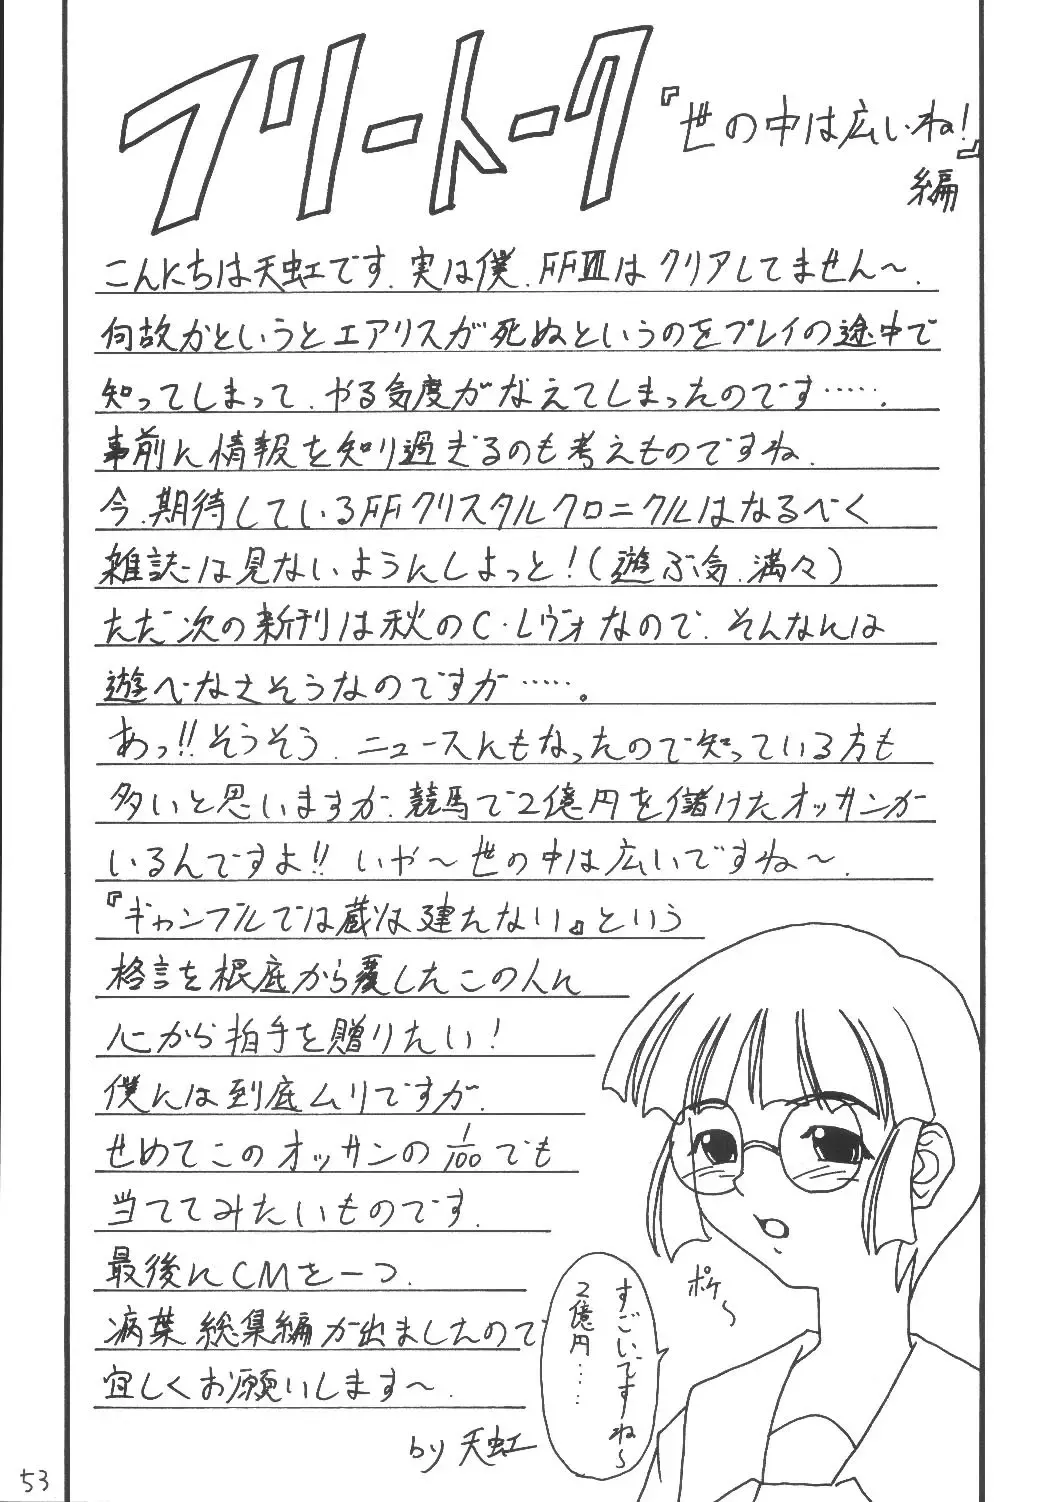 フリートーク
『世の中は広いね!』
編
こんにちは天虹です.実は僕.FFⅦはクリアしてません〜.
何故かというとエアリスが死ぬというのをプレイの途中で
知ってしまって.やる気度がなえてしまったのです…….
事前に情報を知り過ぎるのも考えものですね.
今.期待しているFFクリスタルクロニクルはなるべく
雑誌は見ないようにしよっと!(遊ぶ気.満々)
ただ次の新刊は秋のC・レヴォなので.そんなには
遊べなさそうなのですが……。
あっ!!そうそう.ニュースにもなったので知っている方も
多いと思いますが.競馬で2億円を儲けたオッサンが
いるんですよ!!いや〜世の中は広いですね〜.
『ギャンブルでは蔵は建たない』という
格言を根底から覆したこの人に
心から拍手を贈りたい!
僕には到底ムリですが.
せめてこのオッサンの1/100でも
当ててみたいものです.
最後にCMを一つ.
病葉 総集編が出ましたので
宜しくお願いします〜.
by 天虹
ポケ〜
すごいですね〜
2億円……
53